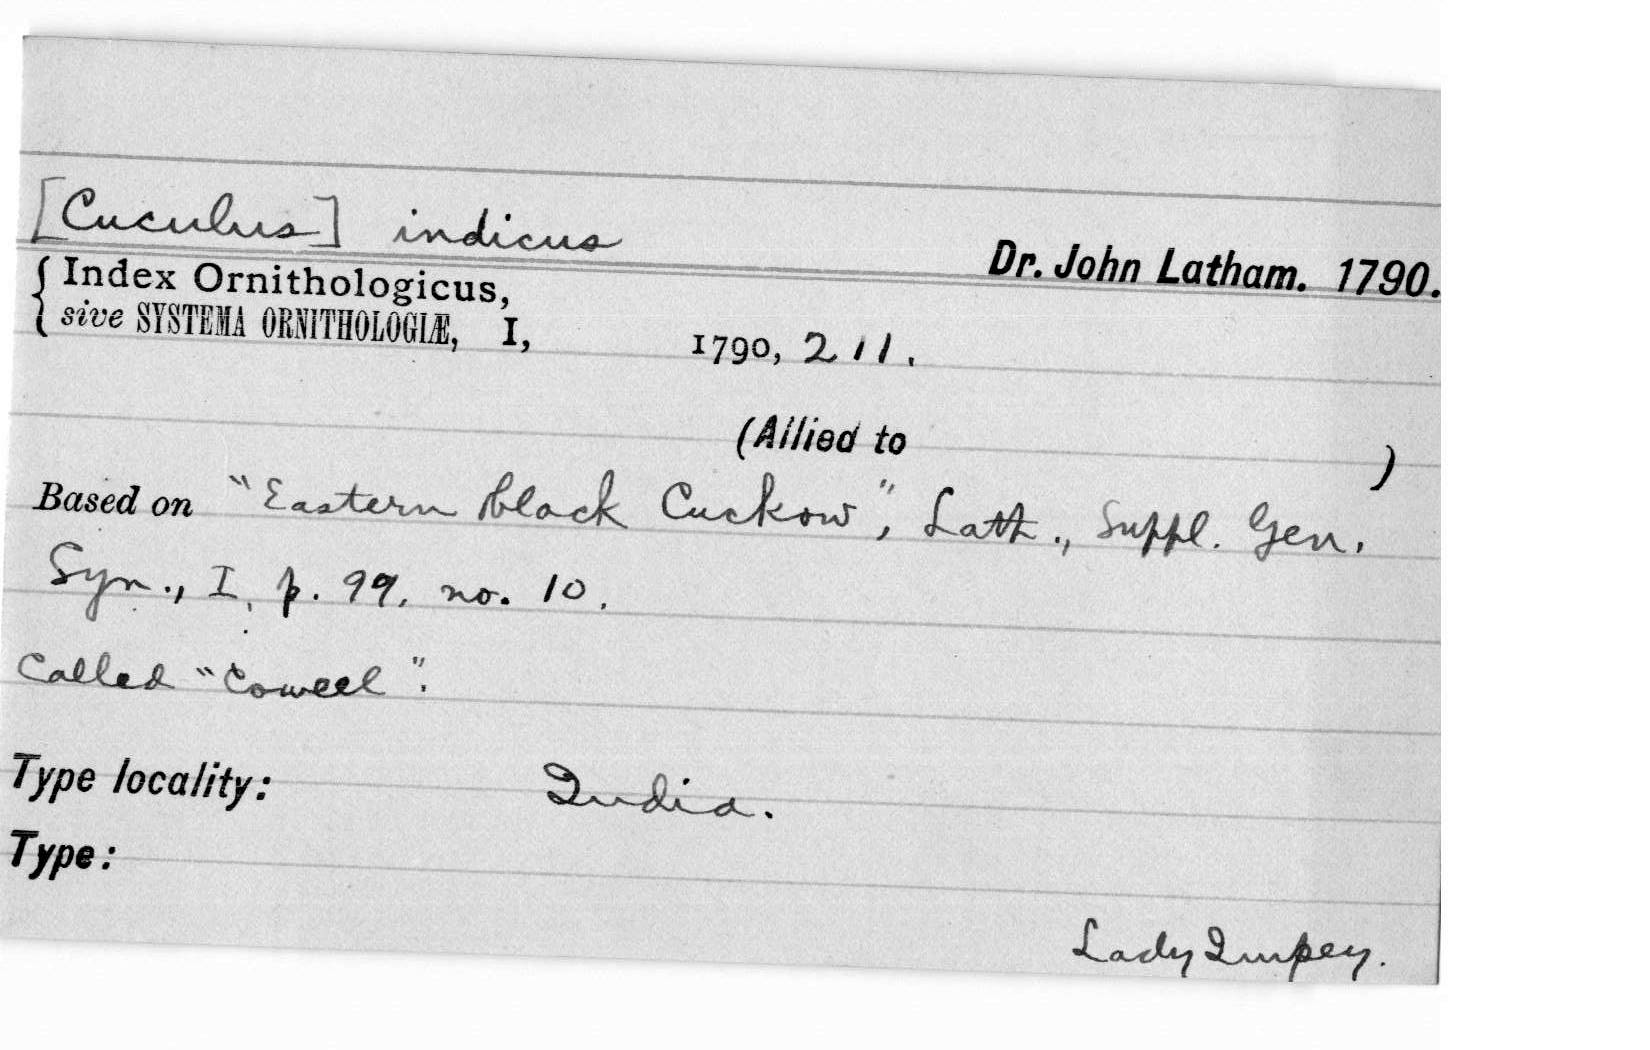 [Cuculus] indicus
Dr. John Latham. 1790.
Index Ornithologicus,
sive SYSTEMA ORNITHOLOGIÆ, I, 1790, 211.
(Allied to )
Based on "Eastern black Cuckow", Lath., Suppl. Gen.
Syn., I, p. 99, no. 10.
Called "Coweel".
Type locality: India.
Type:
Lady Impey.